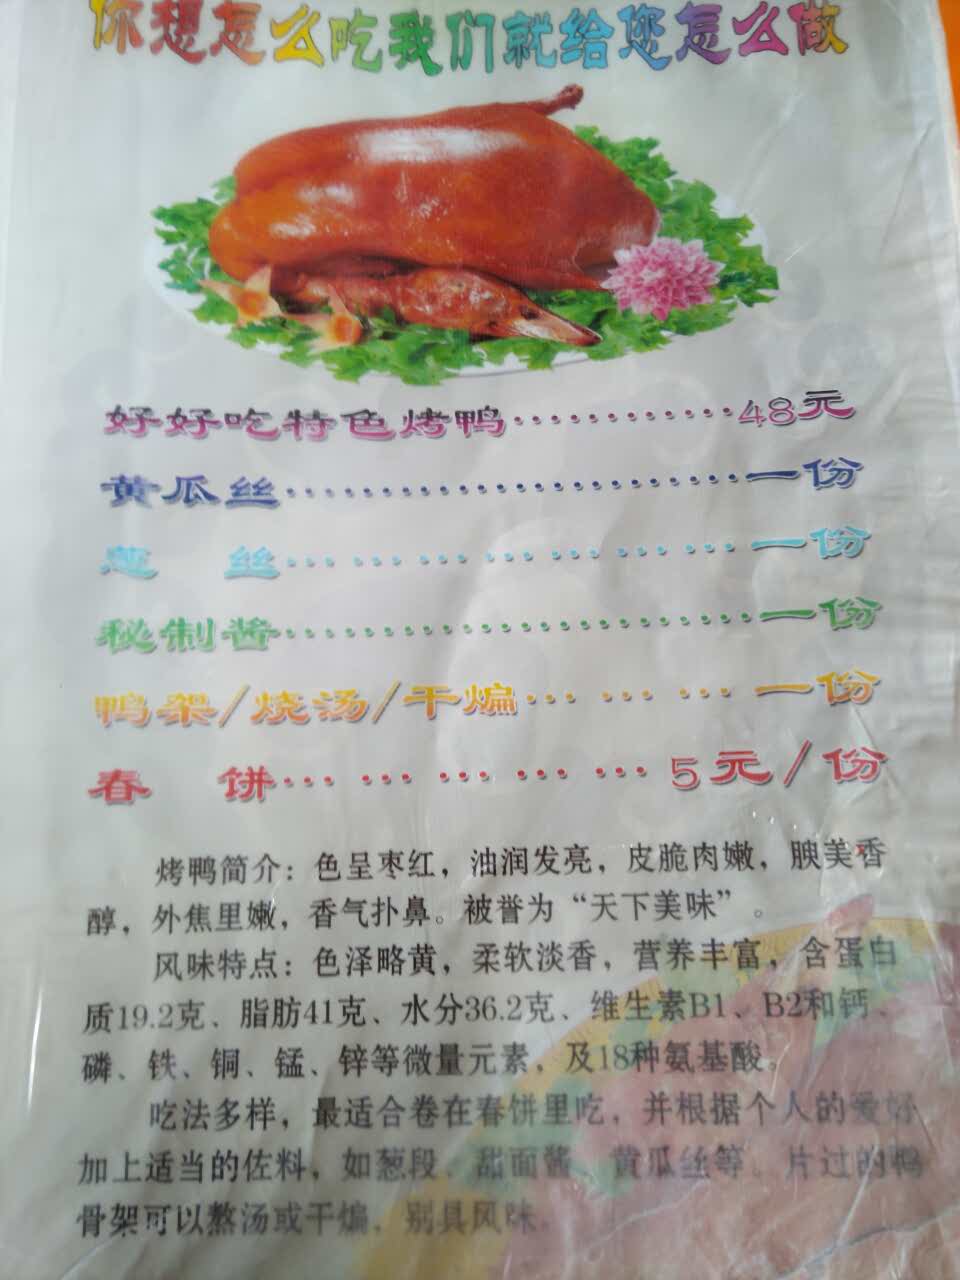 你想怎么吃我们就给您怎么做
好好吃特色烤鸭············48元
黄瓜丝························一份
葱 丝··· ··· ··· ··· ··· ··· ···一份
秘制酱························一份
鸭架/烧汤/干煸··· ··· ···一份
春 饼··· ··· ··· ··· ···5元/份
烤鸭简介：色呈枣红，油润发亮，皮脆肉嫩，腴美香
醇，外焦里嫩，香气扑鼻。被誉为“天下美味”。
风味特点：色泽略黄，柔软淡香，营养丰富，含蛋白
质19.2克、脂肪41克、水分36.2克、维生素B1、B2和钙、
磷、铁、铜、锰、锌等微量元素，及18种氨基酸。
吃法多样，最适合卷在春饼里吃，并根据个人的爱好
加上适当的佐料，如葱段、甜面酱、黄瓜丝等。片过的鸭
骨架可以熬汤或干煸，别具风味。